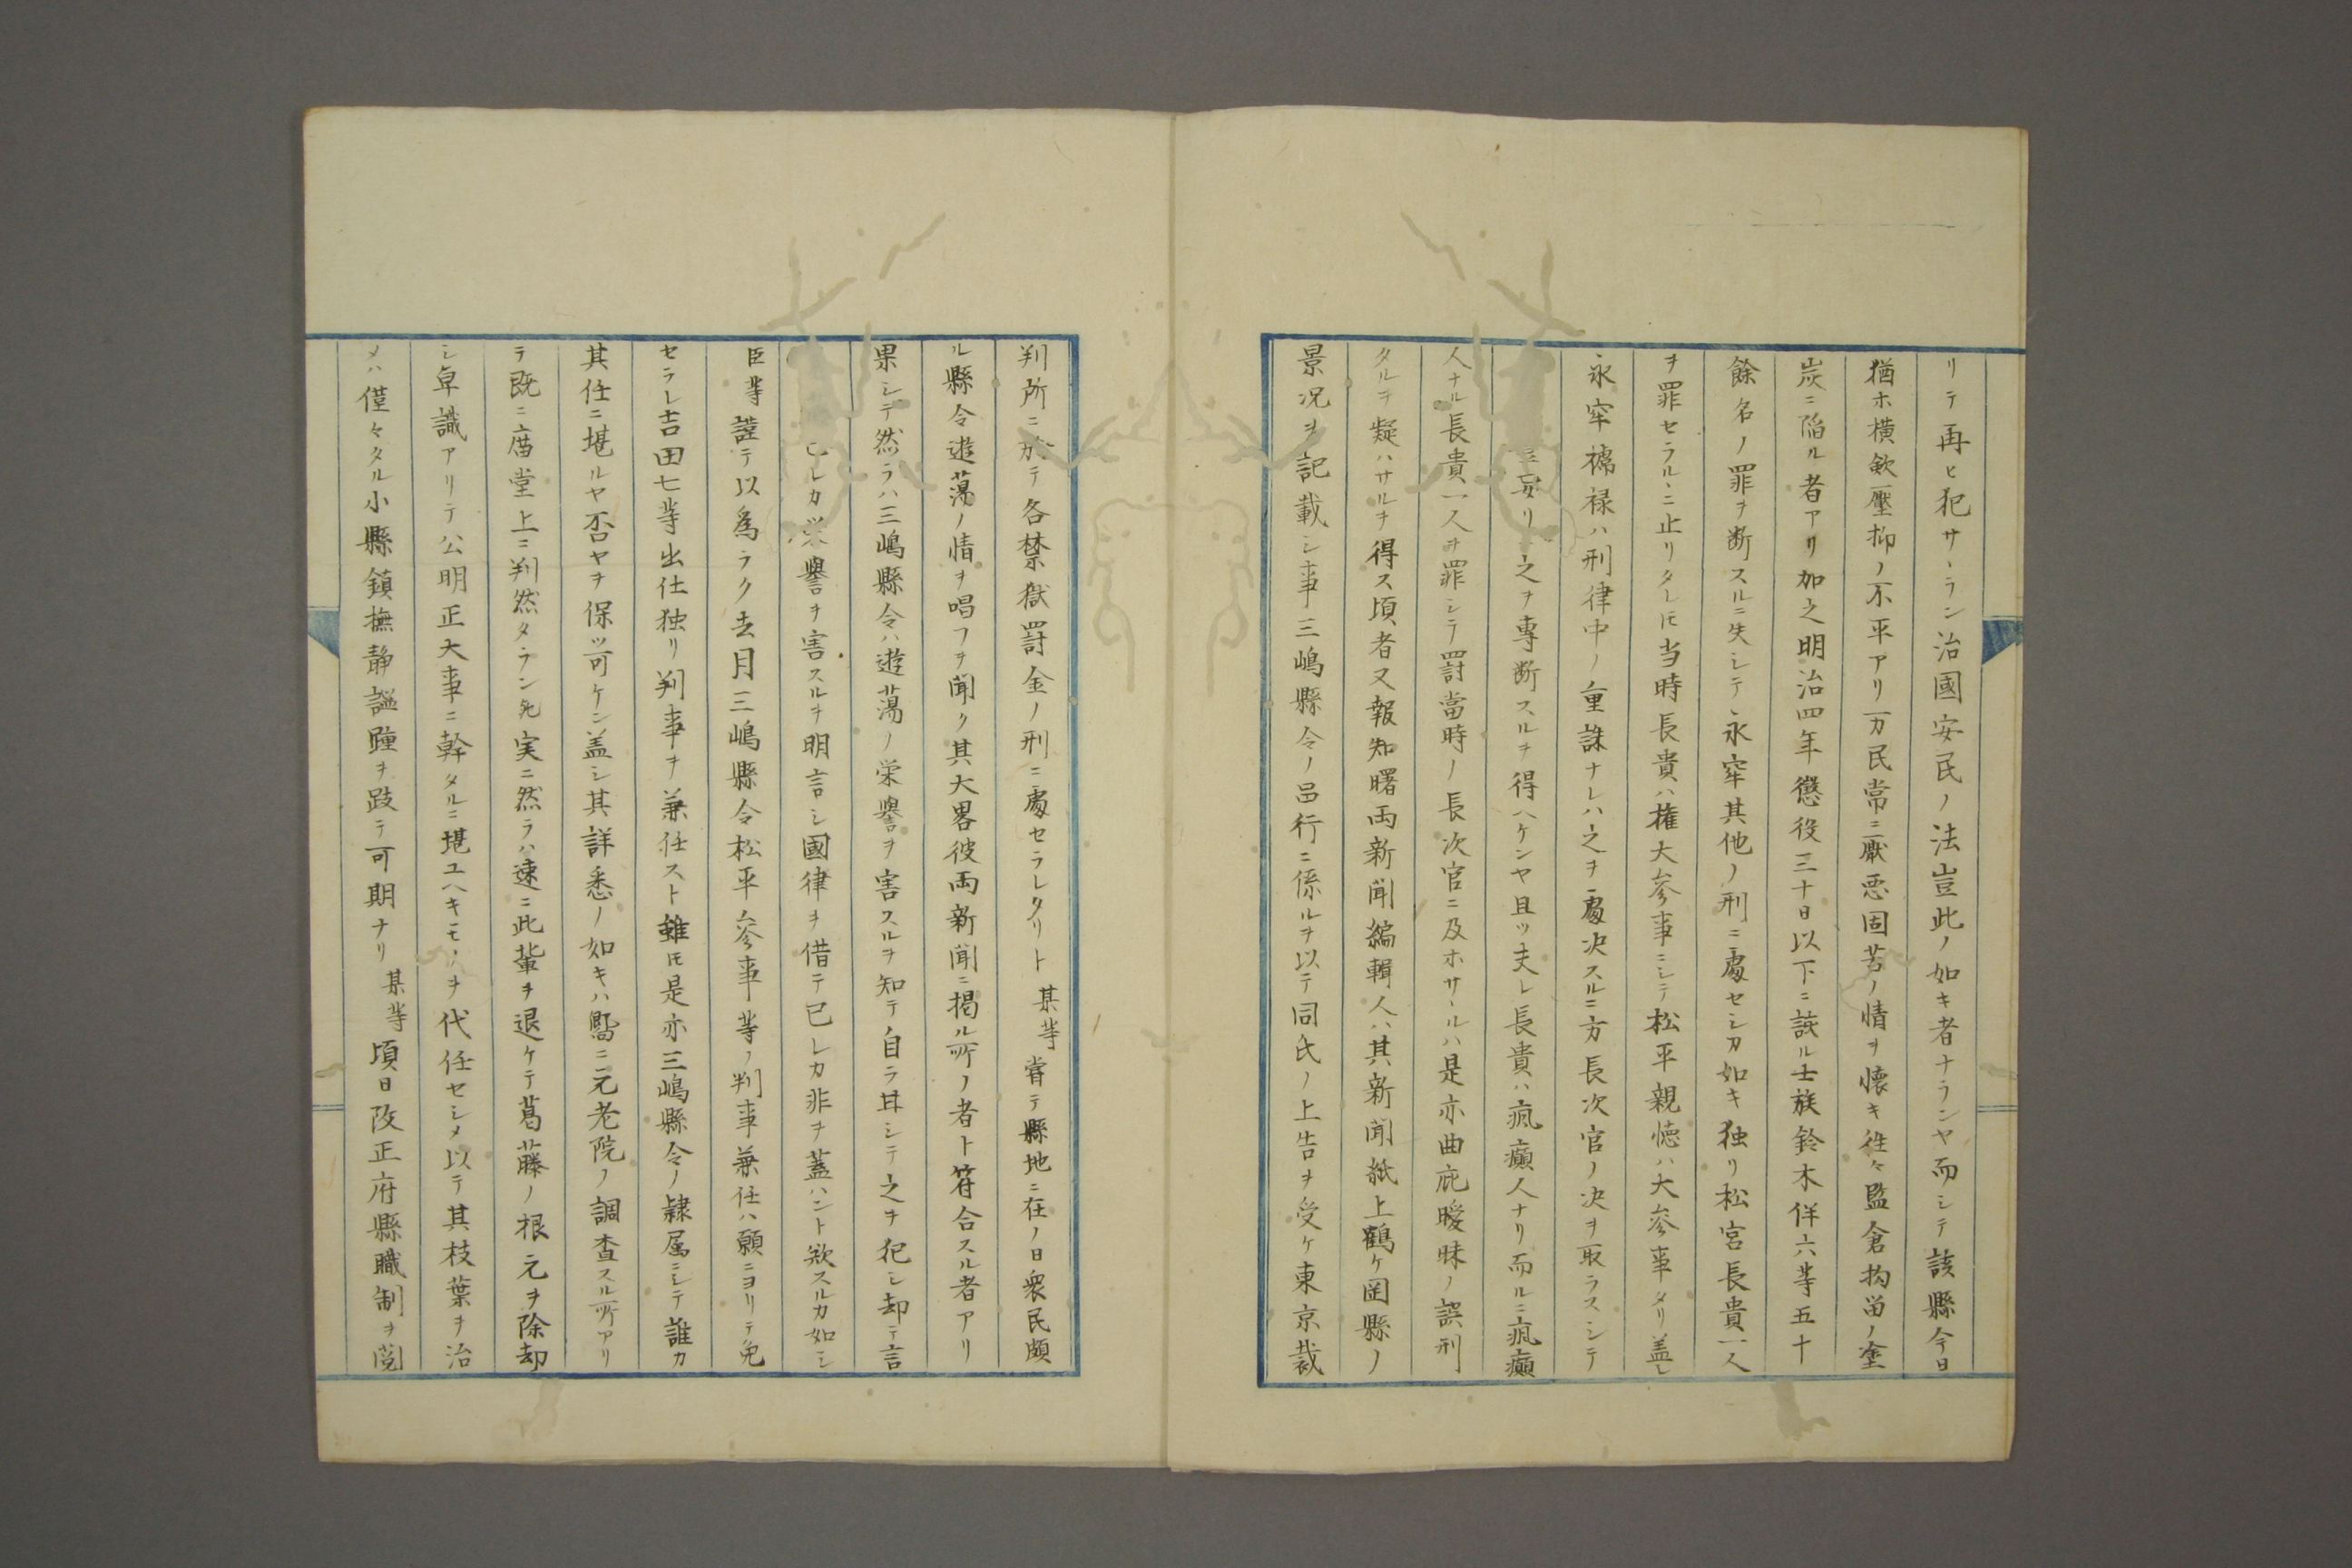 リテ再ヒ犯サヽラン治國安民ノ法豈此ノ如キ者ナランヤ而シテ該縣今日
猶ホ横歛壓抑ノ不平アリ一万民常ニ厭悪固苦ノ情ヲ懐キ徃々監倉拘留ノ塗
炭ニ陥ル者アリ加之明治四年懲役三十日以下ニ該ル士族鈴木佯六等五十
餘名ノ罪ヲ断スルニ失シテ永牢其他ノ刑ニ處セシカ如キ独リ松宮長貴一人
ヲ罪セラルヽニ止リタレ圧当時長貴ハ権大参事ニシテ松平親懐ハ大参事タリ盖シ
永牢褫禄ハ刑律中ノ重誅ナレハ之ヲ處决スルニ方長次官ノ决ヲ取ラスシテ
妄リ之ヲ専断スルヲ得ヘケンヤ且ツ夫レ長貴ハ瘋癲人ナリ而ルニ瘋癲
人ナル長貴一人ヲ罪シテ罸當時ノ長次官ニ及ホサヽルハ是亦曲庇曖昧ノ誤刑
タルヲ疑ハサルヲ得ス頃者又報知曙両新聞編輯人ハ其新聞紙上鶴ケ岡縣ノ
景况ヲ記載シ事三嶋縣令ノ品行ニ係ルヲ以テ同氏ノ上告ヲ受ケ東京裁
判所ニ於テ各禁獄罸金ノ刑ニ處セラレタリト某等甞テ縣地ニ在ノ日衆民頗
ル縣令遊蕩ノ情ヲ唱フヲ聞ク其大畧彼両新聞ニ掲ル所ノ者ト符合スル者アリ
果シテ然ラハ三嶋縣令ハ遊蕩ノ栄譽ヲ害スルヲ知テ自ラ甘シテ之ヲ犯シ却テ言
已レカ栄譽ヲ害スルヲ明言シ國律ヲ借テ已レカ非ヲ蓋ハント欲スルカ如シ
臣等謹テ以為ラク去月三嶋縣令松平参事等ノ判事兼任ハ願ニヨリテ免
セラレ吉田七等出仕独リ判事ヲ兼任スト雖圧是亦三嶋縣令ノ隷属ニシテ誰カ
其任ニ堪ルヤ否ヤヲ保ツ可ケン盖シ其詳悉ノ如キハ曩ニ元老院ノ調査スル所アリ
テ既ニ庿堂上ニ判然タラン矣実ニ然ラハ速ニ此輩ヲ退ケテ葛藤ノ根元ヲ除却
シ卓識アリテ公明正大事ニ幹タルニ堪ユヘキモノヲ代任セシメ以テ其枝葉ヲ治
メハ僅々タル小縣鎮撫静謐踵ヲ跂テ可期ナリ某等頃日改正府縣職制ヲ閲